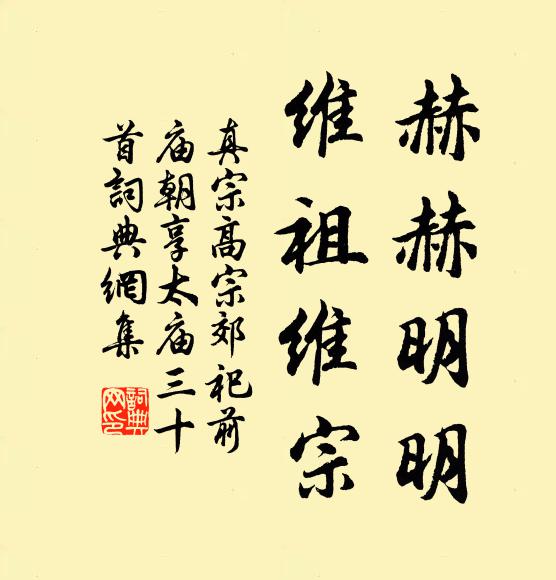 赫赫明明
维祖维宗
真宗高宗郊祀前
庙朝享太庙三十
首詞典網集
詞典
网印